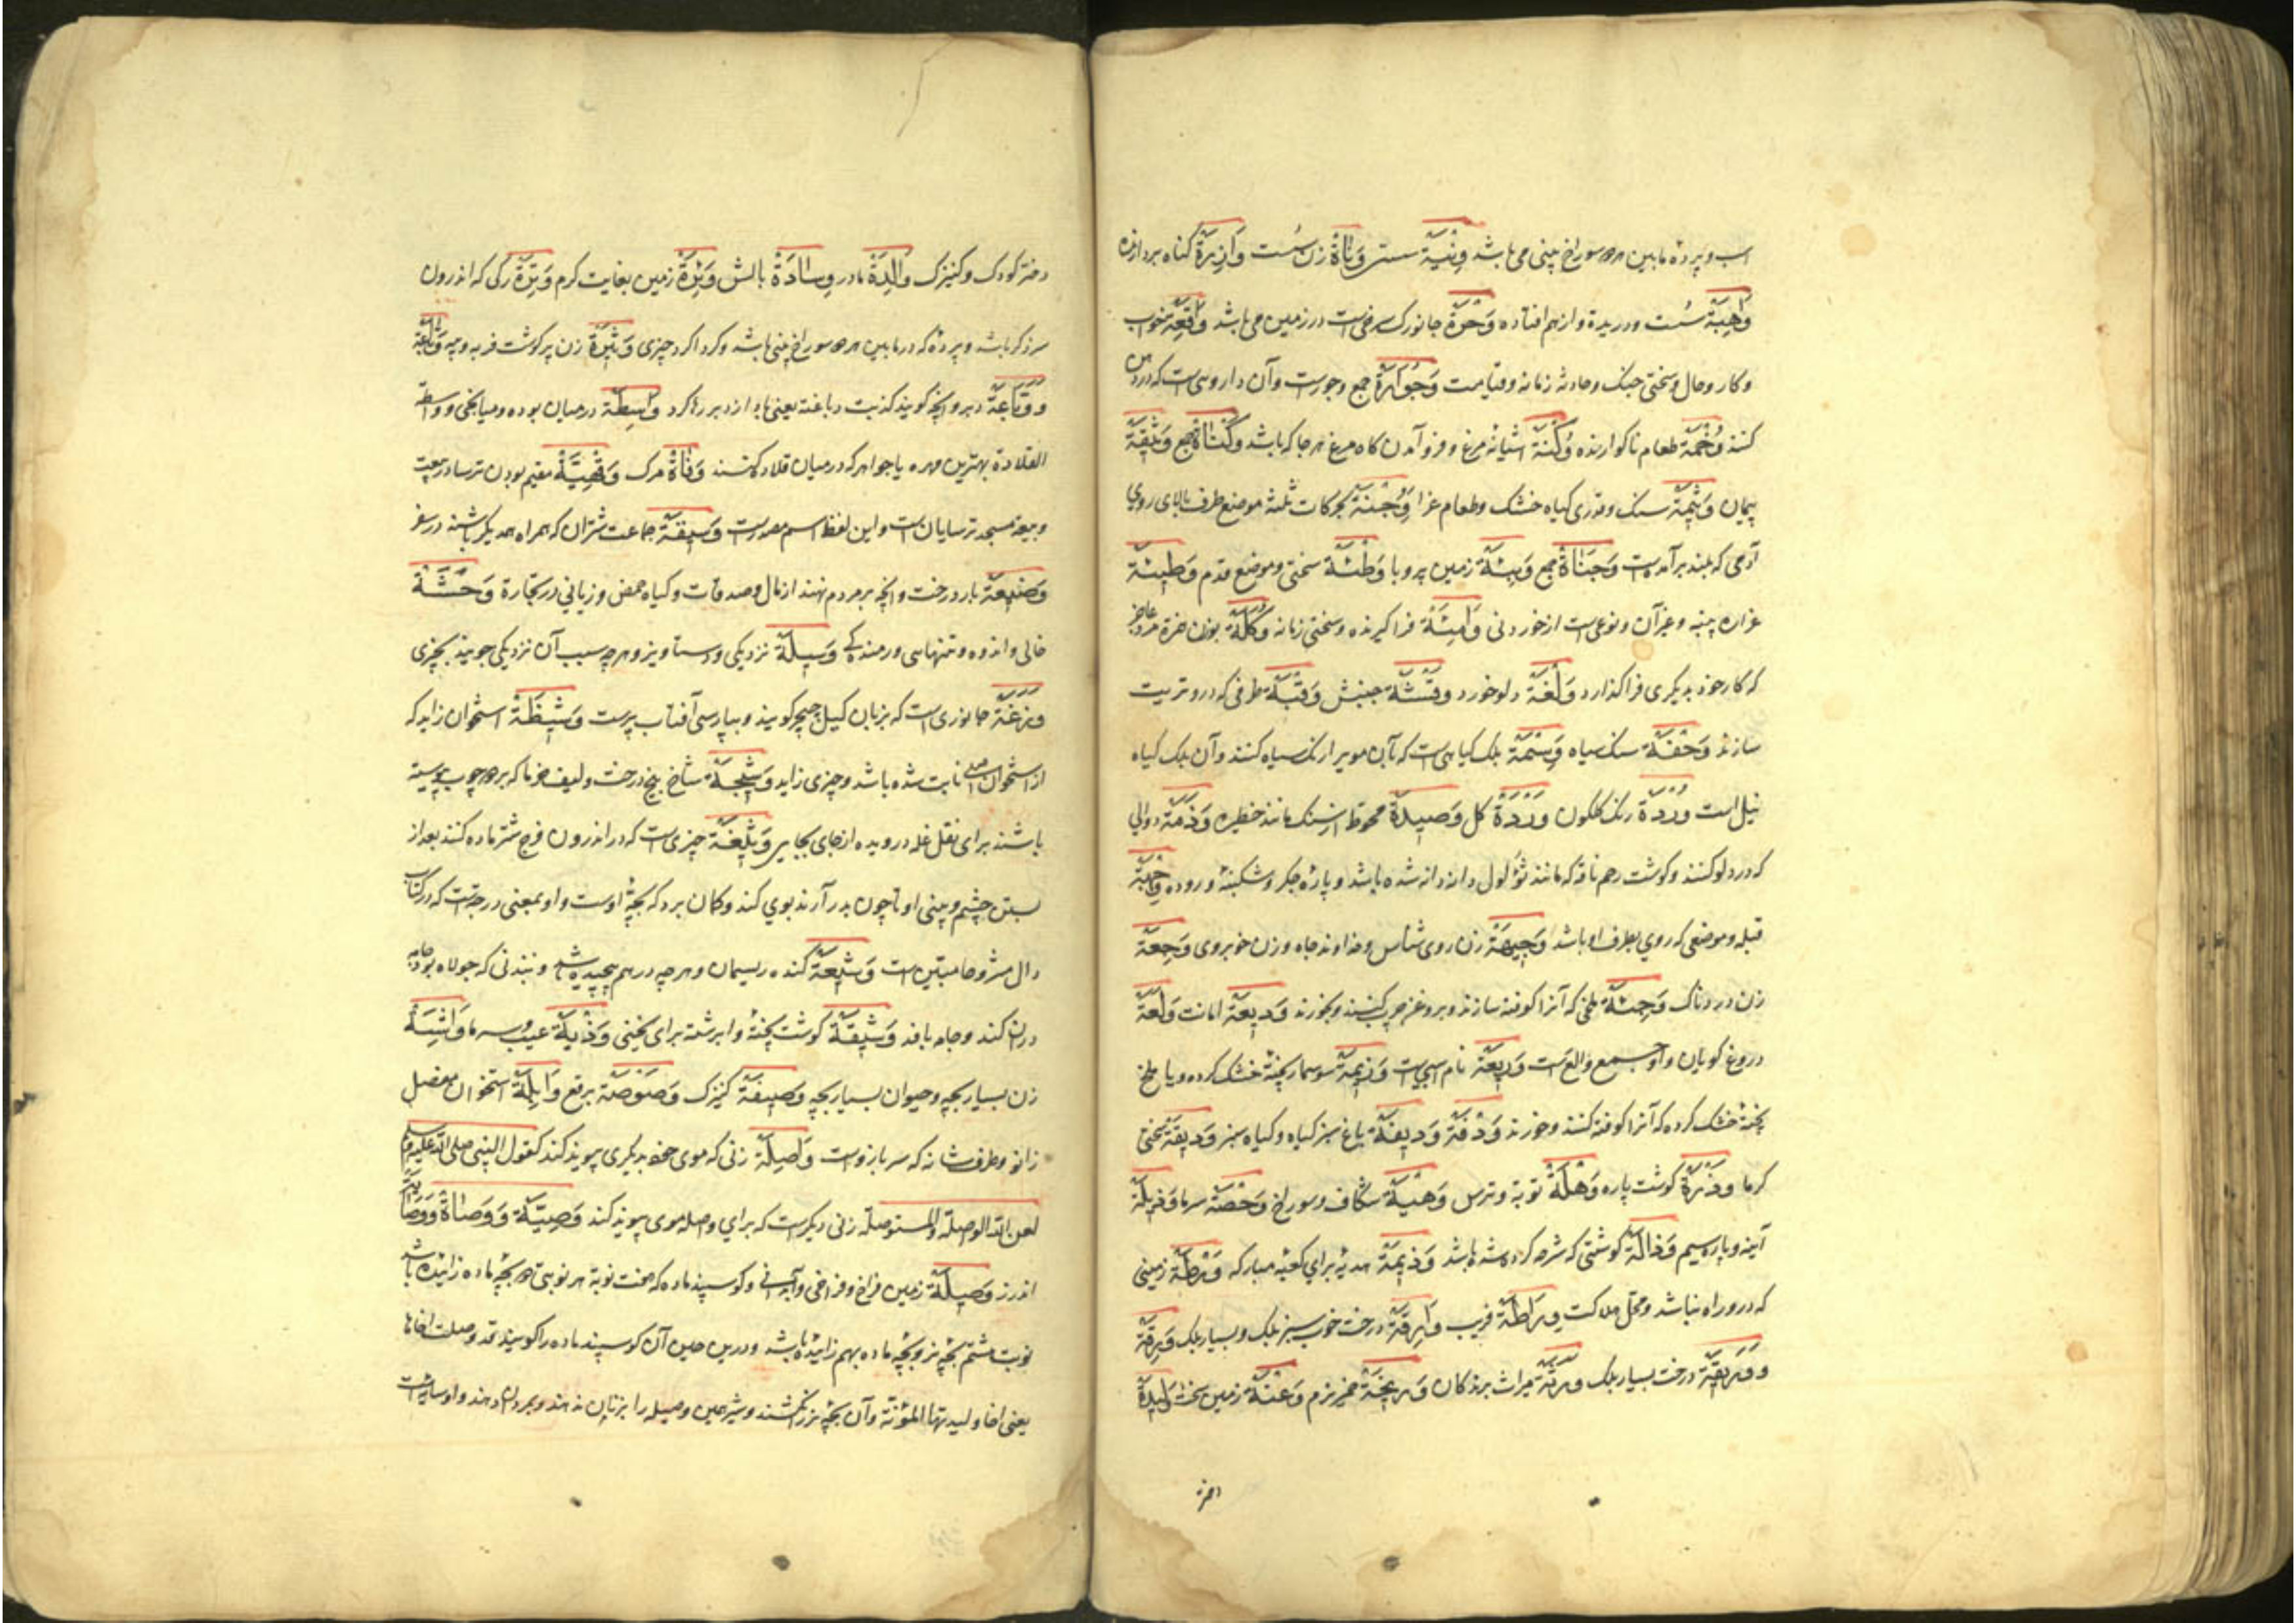 اسب و پرده مابین هر دو سوراخ بینی می باشد وَنْیَة سستی وَنَاةْ زن سُست وَازِرَة کناه بردارنده
وَاهِیَة سُست و دریدة و از هم افتاده وَحَرَةْ جانورک سرخی است در زمین می باشد وَاقِعَة
و کار و حال و سختی جنک و حادثه زمانه و قیامت وَجُورَة جمع وجورست و آن دارویی است که در دهن
کنند وُخَمَة طعام ناکوارنده وُکْنَة اشیانهٔ مرغ و فرو آمدن کاه مرغ هر جا که باشد وَثِیقَة
پیمان وَثِیمَة سنک و توری کیاه خشک و طعام عزا وَجْنَة بحرکات ثلثة موضع طرف بالای روی
آدمی که بلند برآمدست وَجَنَاة جمع وَبِئَة زمین پر وبا وَطْئَة سختی و موضع قدم وَطِیئَة
غراره پنبه و غیر آن و نوعی است از خوردنی وَامِئَة فرا کیرنده و سختی زمانه وُکَلَة بوزن همزة مرد عاجز
که کار خود بدیکری فراکذارد وَلْغَة دلو خورد جنبش ظرفی که درو تریت
سازند سنک سیاه وَسْمَة بلک کیاهی است که بآن موی را رنک سیاه کنند و آن بلک کیاه
نیل است وُرْدَة رنک کلکون وَرْدَة کل وَصِیدَة محوطه از سنک مانند خطیره وَذَمَة دوالی
که در دلو کنند و کوشت رحم ناقه که مانند ثؤلول دانه دانه شده باشد و پارهٔ جکر و شکنبهٔ و روده وِجْهَة
قبله و موضعی که روی بطرف او باشد وَجِیهَة زن روی شناس و خداوند جاه و زن خوبروی وَجِعَة
زن دردناک ملخی که آنرا کوفته سازند و بروغن چرب کنند و بخورند وَدِیعَة امانت وَلَعَة
دروغ کویان و او جمع والع است وَرِیعَة نام اسبی است وَزِیمَة سوسمار پختهٔ خشک کرده و یا ملخ
پختهٔ خشک کرده که آنرا کوفته کنند و خورند وَدْفَة وَدِیفَة باغ سبز کیاه و کیاه سبز وَدِیقَة سختی
کرما وَذْرَة کوشت پاره وَهْلَةْ نوبة و ترس وَهْیَة شکاف و سوراخ سرما وَذِیلَة
آینه و پاره سیم وَذَالَة کوشتی که شرحه کرده شده باشد وَذِیمَة هدیهٔ برای کعبه مبارکه وَرْطَة زمینی
که درو راه نباشد و محل هلاکت وِرَاطَة فریب وَارِقَة درخت خوب سبز بلک و بسیار بلک وَرِقَة
و وَرِیقَة درخت بسیار بلک میراث برندکان وَرِیخَة خمیر نرم وَعْنَة زمین سخت وَلِیدَة
دختر
دختر کودک و کنیزک وَالِدَةْ مادر وِسَادَةْ بالش وَئِرَةْ زمین بغایت کرم وَتِرَة رکی که اندرون
سر ذکر باشد و پردهٔ که در مابین هر دو سوراخ بینی باشد و کرداکرد چیزی وَثِیرَةْ زن پر کوشت فربه
و وَبَّاعَة دبر و آنچه کویند کذبت وباغته یعنی باد از دبر رها کرد وَاسِطَة در میان بوده و میانجی و واسطة
القلادة بهترین مهره یا جواهر که در میان قلاده کشند وَفَاةْ مرک وَفْهِیَّةْ مقیم بودن ترسا در بیعت
و بیعة مسجد ترسایان است و این لفظ اسم مصدرست وَسِیقَة جماعت شتران که همراه همدیکر باشند در سفر
وَضِیعَة بار درخت و آنچه بر مردم نهند از مال و صدقات و کیاه حمض و زیانی در تجارة وَحْشَةْ
خالی و اندوه و تنهایی و رمندکی وَسِیلَة نزدیکی و دستاویز و هر چه سبب آن نزدیکی جویند بچیزی
وَزَغَة جانوری است که بزبان کیل چیچر کویند و بپارسی آفتاب پرست وَشِیظَةْ استخوان زاید که
از استخوان اصلی ثابت شده باشد و چیزی زاید وَشِیجَةْ شاخ بیخ درخت و لیف خرما که بر دو چوب پیوسته
باشند برای نقل غله درویده از جای بجایی وَثِیغَة چیزی است که در اندرون فرج شتر ماده کنند بعد از
بستن چشم و بینی او تا چون بدر آرند بوی کند و کمان برد که بچهٔ اوست و او بمعنی درجة است که در کتاب
دال مشروحا مبین است وَشِیعَةْ کنده ریسمان و هر چه در هم پیچیده باشد و بندنی که جولاه بود جامه
دران کند و جامه بافد وَشِیقَةْ کوشت پختهٔ و ابرشته برای یخنی وَذِیَة عیب و سرما وَاشِیَةْ
زن بسیار بچه و حیوان بسیار بچه وَصِیفَةْ کنیزک وَصْوَصَة برقع وَابِلَةْ استخوان مفصل
زانو و طرف شانه که سر بازوست وَاصِلَة زنی که موی خود بدیکری پیوند کند کقول النبی صلی الله علیه وسلم
لعن الله الواصلة والمستوصلة زنی دیکرست که برای وصله موی پیوند کند وَصِیَّة وَوَصَاةْ وَوَصَایَة
اندرز وَصِیلَة زمین فراخ و فراخی و آبادانی و کوسپند ماده که هفت نوبة هر نوبتی دو بچهٔ ماده زائیده باشد
نوبت هشتم بچهٔ نر و بچهٔ ماده بهم زائیده باشد و درین حین آن کوسپند ماده را کویند قد وصلت اخاها
یعنی اخا ولیدتها المؤنثة و آن بچهٔ نر را نکشند و شیر همین وصیله را بزنان ندهند و بمردان دهند و او سائبه است